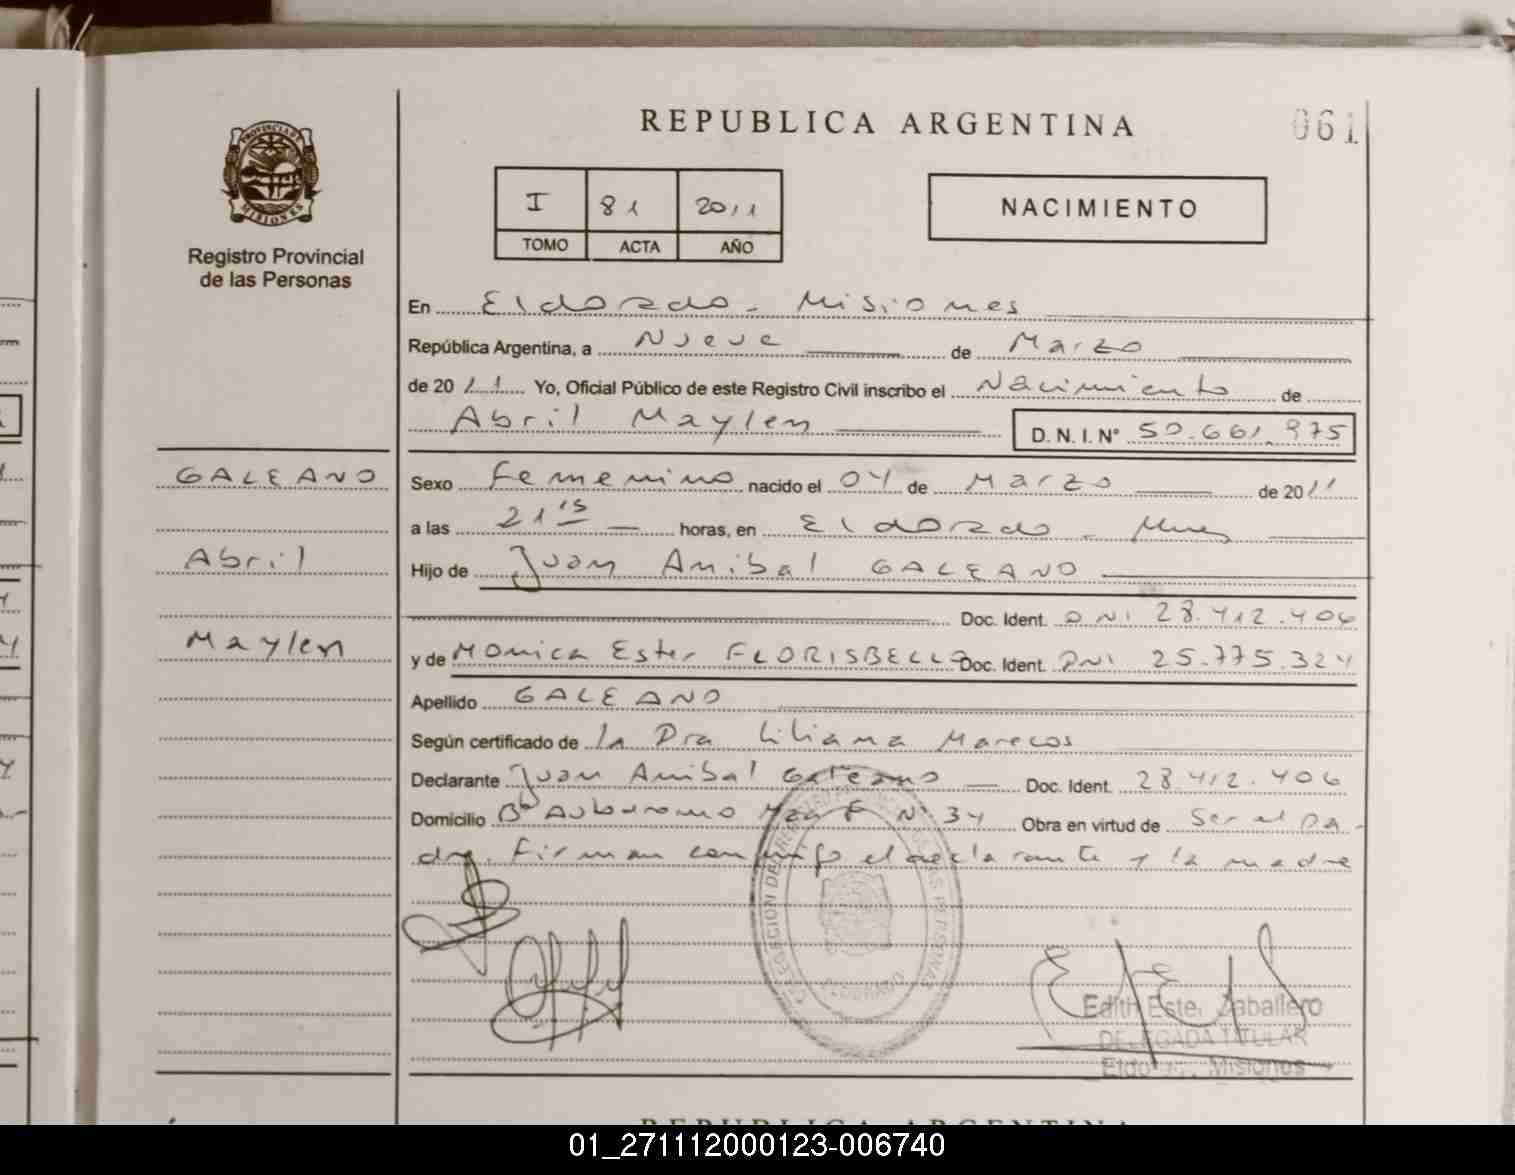 REPUBLICA ARGENTINA
061
PROVINCIA DE MISIONES
Registro Provincial
de las Personas
I 81 2011
TOMO ACTA AÑO
NACIMIENTO
En Eldorado - Misiones
República Argentina, a Nueve de Marzo
de 2011 Yo, Oficial Público de este Registro Civil inscribo el Nacimiento de
Abril Maylen D. N. I. N° 50.661.975
GALEANO
Abril
Maylen
Sexo Femenino nacido el 04 de Marzo de 2011
a las 21 15 horas, en Eldorado - Mnes
Hijo de Juan Anibal GALEANO
Doc. Ident. DNI 28.412.406
y de Monica Ester FLORISBELLO Doc. Ident. DNI 25.775.324
Apellido GALEANO
Según certificado de la Dra Liliana Marecos
Declarante Juan Anibal Galeano Doc. Ident. 28.412.406
Domicilio B° Autodromo Mza F N° 34 Obra en virtud de Ser el pa-
dre. Firman conmigo el declarante y la madre
DELEGACION DE REGISTRO DE LAS PERSONAS
ELDORADO
Edith Ester Zaballero
DELEGADA TITULAR
Eldorado Misiones
REPUBLICA ARGENTINA
01_271112000123-006740